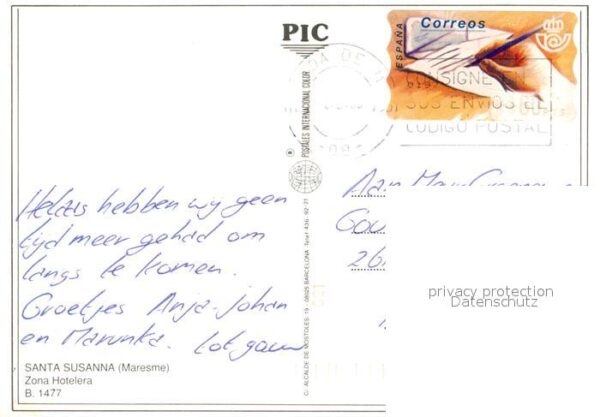 PIC
Correos
ESPAÑA
CONSIGNE EN
SUS ENVIOS EL
CODIGO POSTAL
POSTALES INTERNACIONAL COLOR
C/. ALCALDE DE MOSTOLES, 19 - 08025 BARCELONA - Telef. 436 - 92 - 21
Helaas hebben wij geen
tijd meer gehad om
langs te komen.
Groetjes Anja-Johan
en Marunka. Tot gauw
SANTA SUSANNA (Maresme)
Zona Hotelera
B. 1477
Aan
Gou
26
privacy protection
Datenschutz